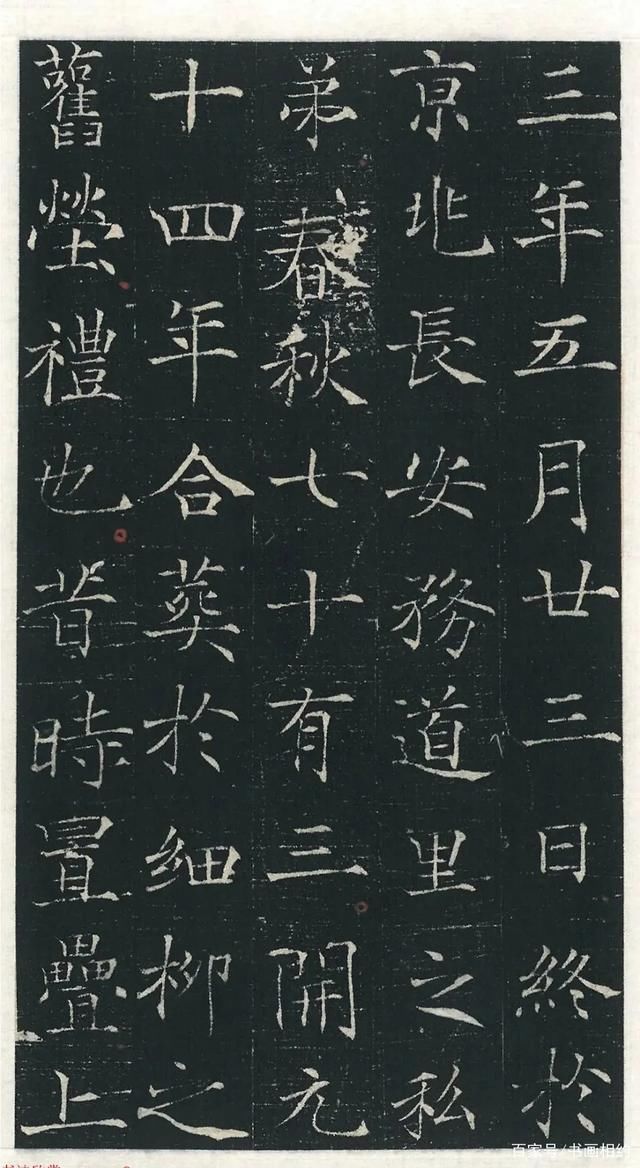 三年五月廿三日終於
京兆長安務道里之私
弟春秋七十有三開元
十四年合葬於細柳之
舊塋禮也昔時置疊上
百家号/书画相约